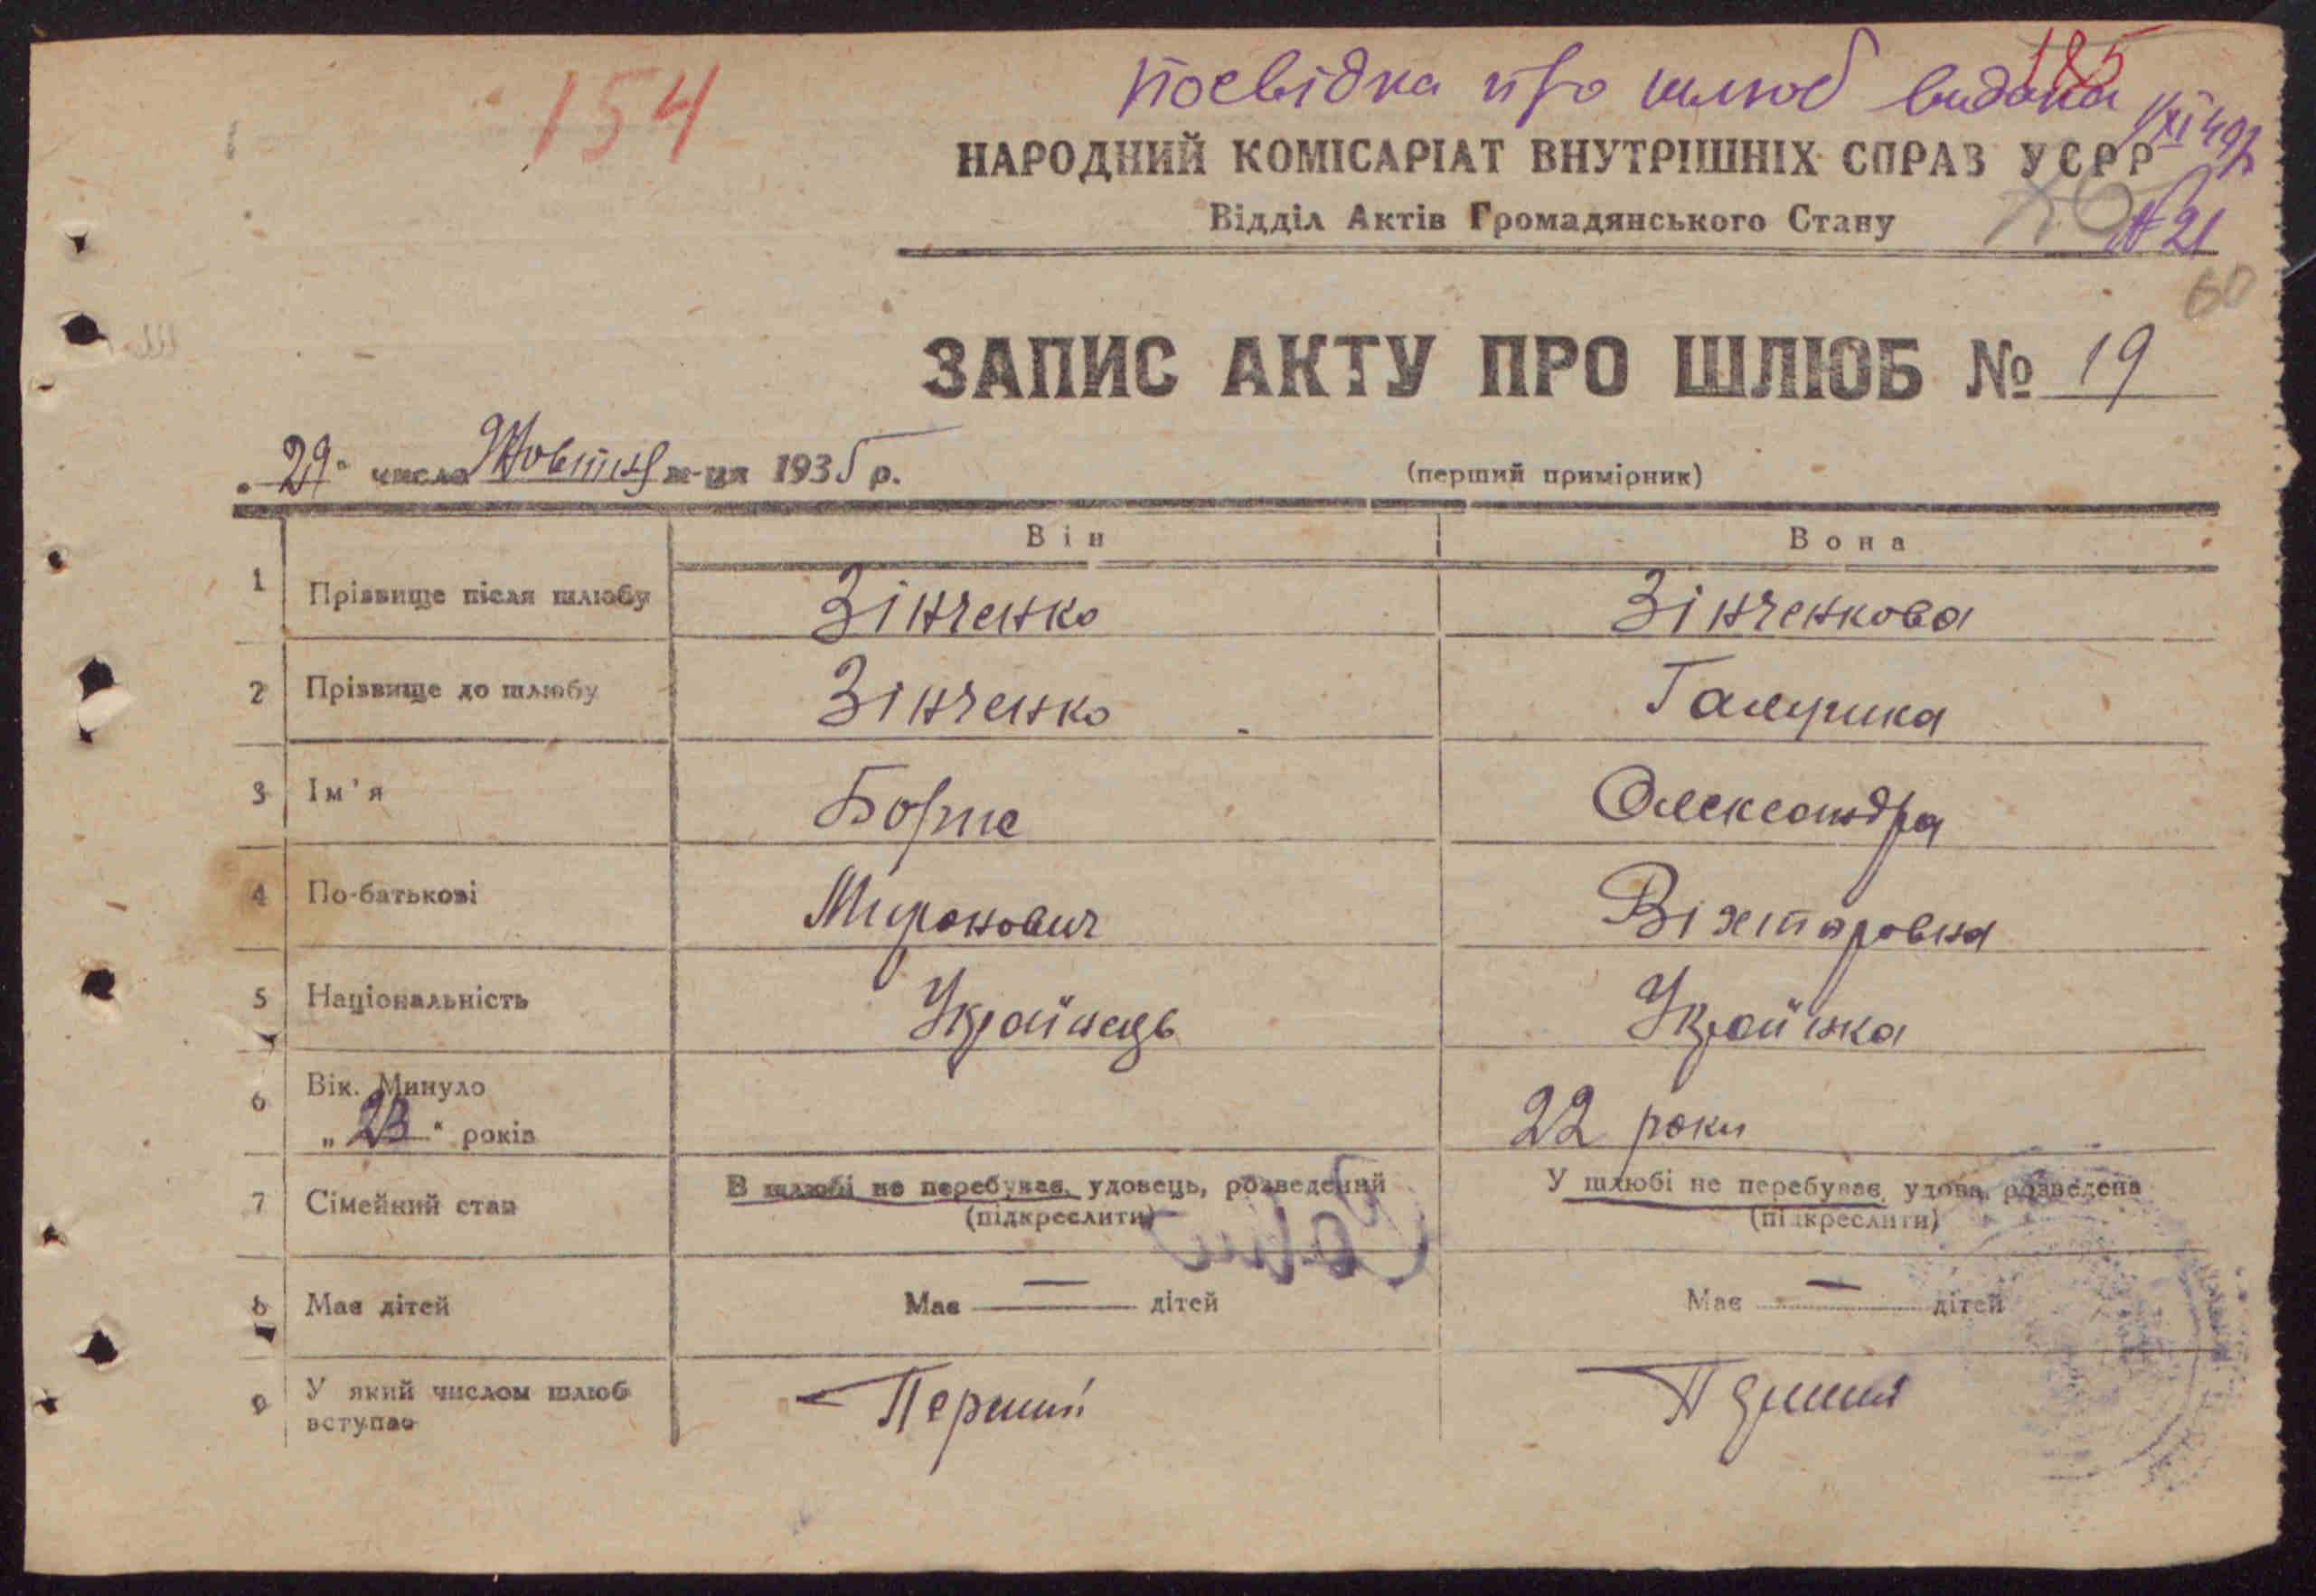 154
185
посвідка про шлюб видана
1/XI 49р
НАРОДНИЙ КОМІСАРІАТ ВНУТРІШНІХ СПРАВ УСРР
Відділ Актів Громадянського Стану
№ 21
60
ЗАПИС АКТУ ПРО ШЛЮБ № 19
„29" числа Жовтня м-ця 1935 р.
(перший примірник)
Він Вона
1 Прізвище після шлюбу Зінченко Зінченкова
2 Прізвище до шлюбу Зінченко
3 Ім'я Борис Олександра
4 По-батькові Миронович Віхторовна
5 Національність Українець Українка
6 Вік. Минуло
„23" років 22 роки
7 Сімейний стан В шлюбі не перебуває, удовець, розведений У шлюбі не перебуває, удова, розведена
(підкреслити) (підкреслити)
8 Має дітей Має — дітей Має — дітей
9 У який числом шлюб
вступає Перший Перший